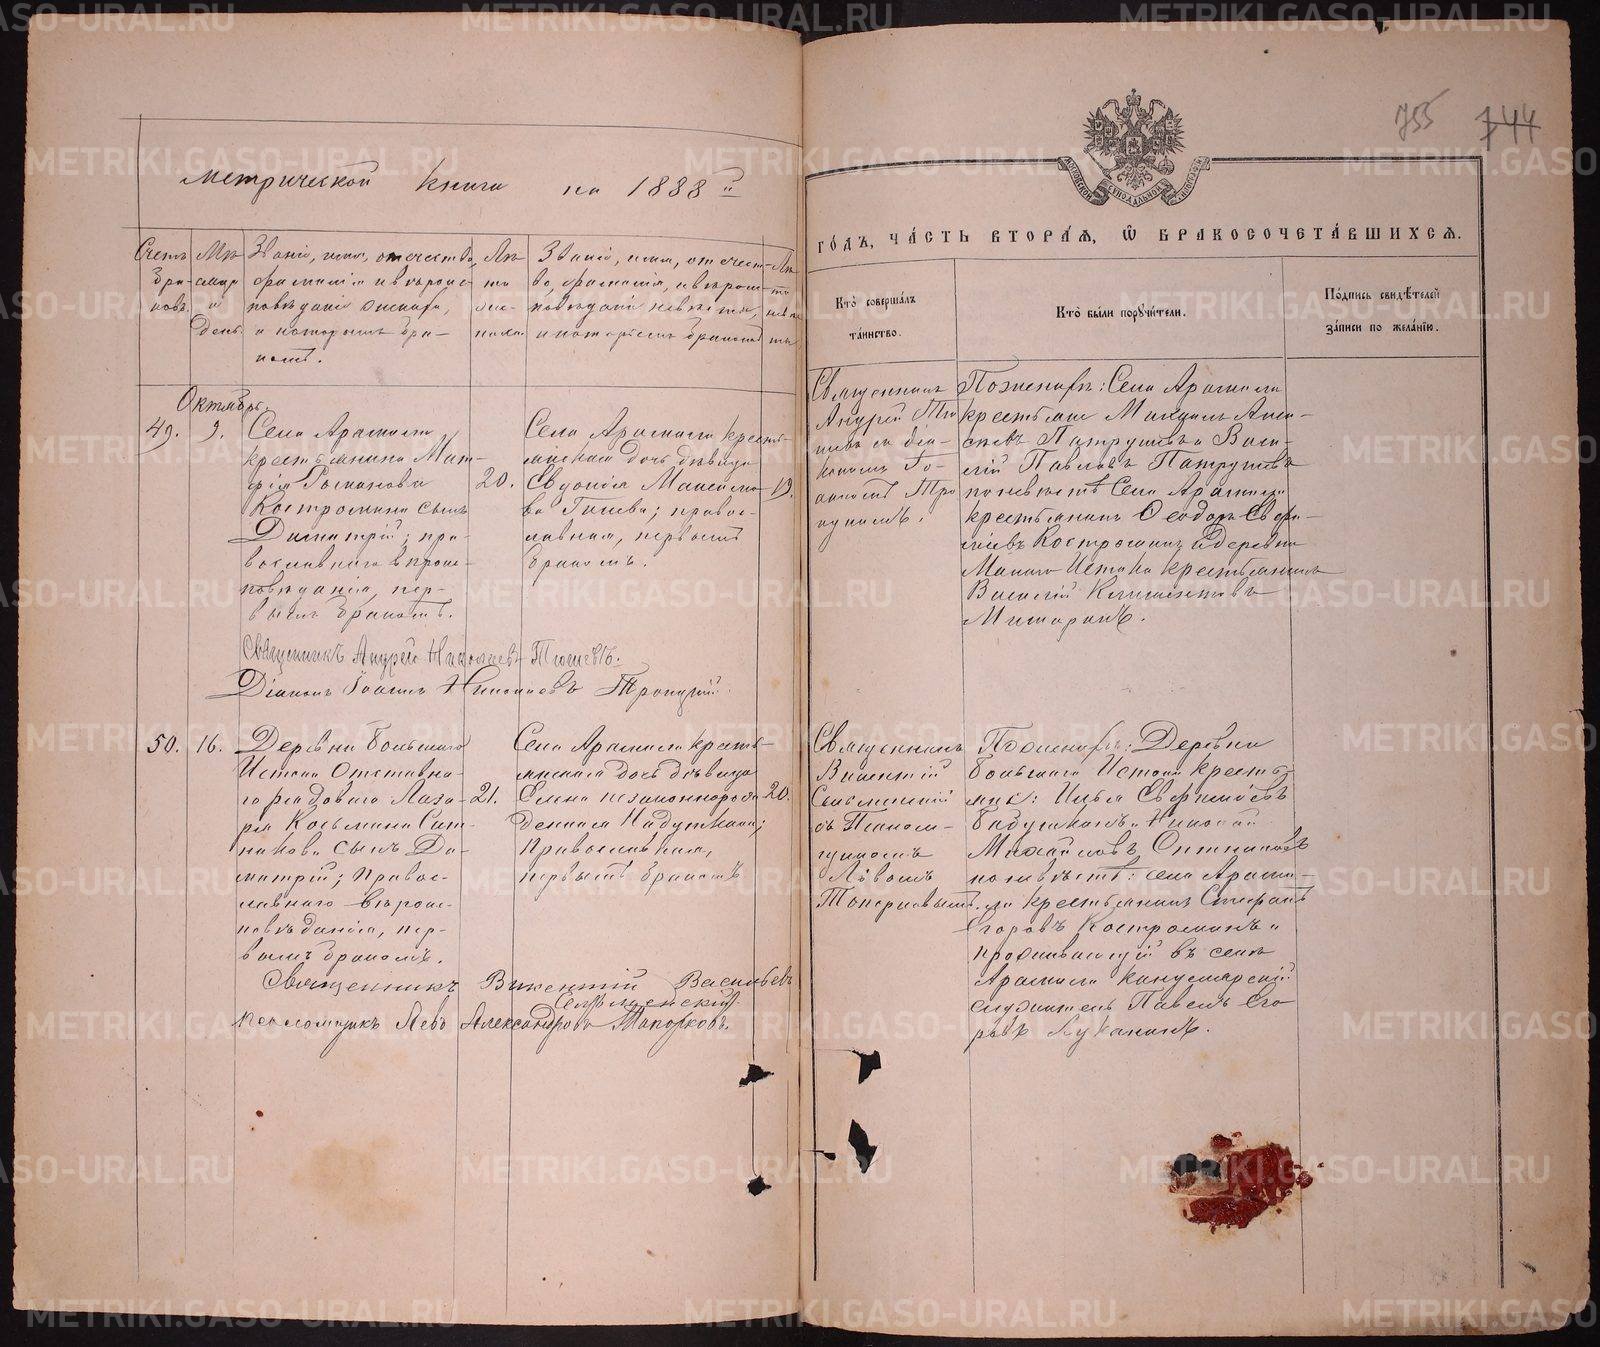 755 744
Метрической книги на 1888й
годъ, часть вторая, ѡ бракосочетавшихся.
Счетъ браковъ.
Мѣсяцъ и день.
Званіе, имя, отчество,
фамилія и вѣроис-
повѣданіе жениха,
и которымъ бра-
комъ.
Лѣта жениха.
Званіе, имя, отчест-
во, фамилія, и вѣроис-
повѣданіе невѣсты,
и которымъ бракомъ
Лѣта невѣсты
Кто совершалъ
таинство.
Кто были поручители.
Подпись свидѣтелей
записи по желанію.
Октябрь.
49.
9.
Села Арамили
крестьянина Мат-
фія Романова
Костромина сынъ
Димитрій; пра-
вославнаго вѣроис-
повѣданія, пер-
вымъ бракомъ.
20.
Села Арамили кресть-
янская дочь дѣвица
Евдокія Максимо-
ва; правос-
лавная, первымъ
бракомъ.
19.
Священникъ
Андрей
съ діа-
кономъ Іо-
анномъ Тро
ицкимъ.
По женихѣ: Села Арамили
крестьяне Михаилъ
Патрушевъ и Васи-
лій Павловъ Патрушевъ
по невѣстѣ Села Арамили
крестьянинъ Ѳеодоръ Евфи-
міевъ Костроминъ и деревни
Малаго Истока крестьянинъ
Василій Климентовъ
Священникъ Андрей Николаевъ
Діаконъ Іоаннъ Николаевъ Троицкій.
50.
16.
Деревни Большаго
Истока Отставна-
го рядоваго Лаза-
ря Козьмина Сит-
никова сынъ Ди-
митрій; правос-
лавнаго вѣроис-
повѣданія, пер-
вымъ бракомъ.
21.
Села Арамили кресть-
янская дочь дѣвица
Елена незаконнорож-
денная;
Православная,
первымъ бракомъ
20.
Священникъ
Викентій
съ Псалом-
щикомъ
Львомъ
Топорковымъ.
По женихѣ: Деревни
Большаго Истока кресть-
яне: Илья Евфиміевъ
и Николай
Михайловъ Ситниковъ
по невѣстѣ: села Арами-
ли крестьянинъ Стефанъ
Егоровъ Костроминъ и
проживающій въ селѣ
Арамили канцелярскій
служитель Павелъ Его
ровъ Луканинъ.
Священникъ Викентій Васильевъ
Псаломщикъ Левъ Александровъ Топорковъ.
METRIKI.GASO-URAL.RU